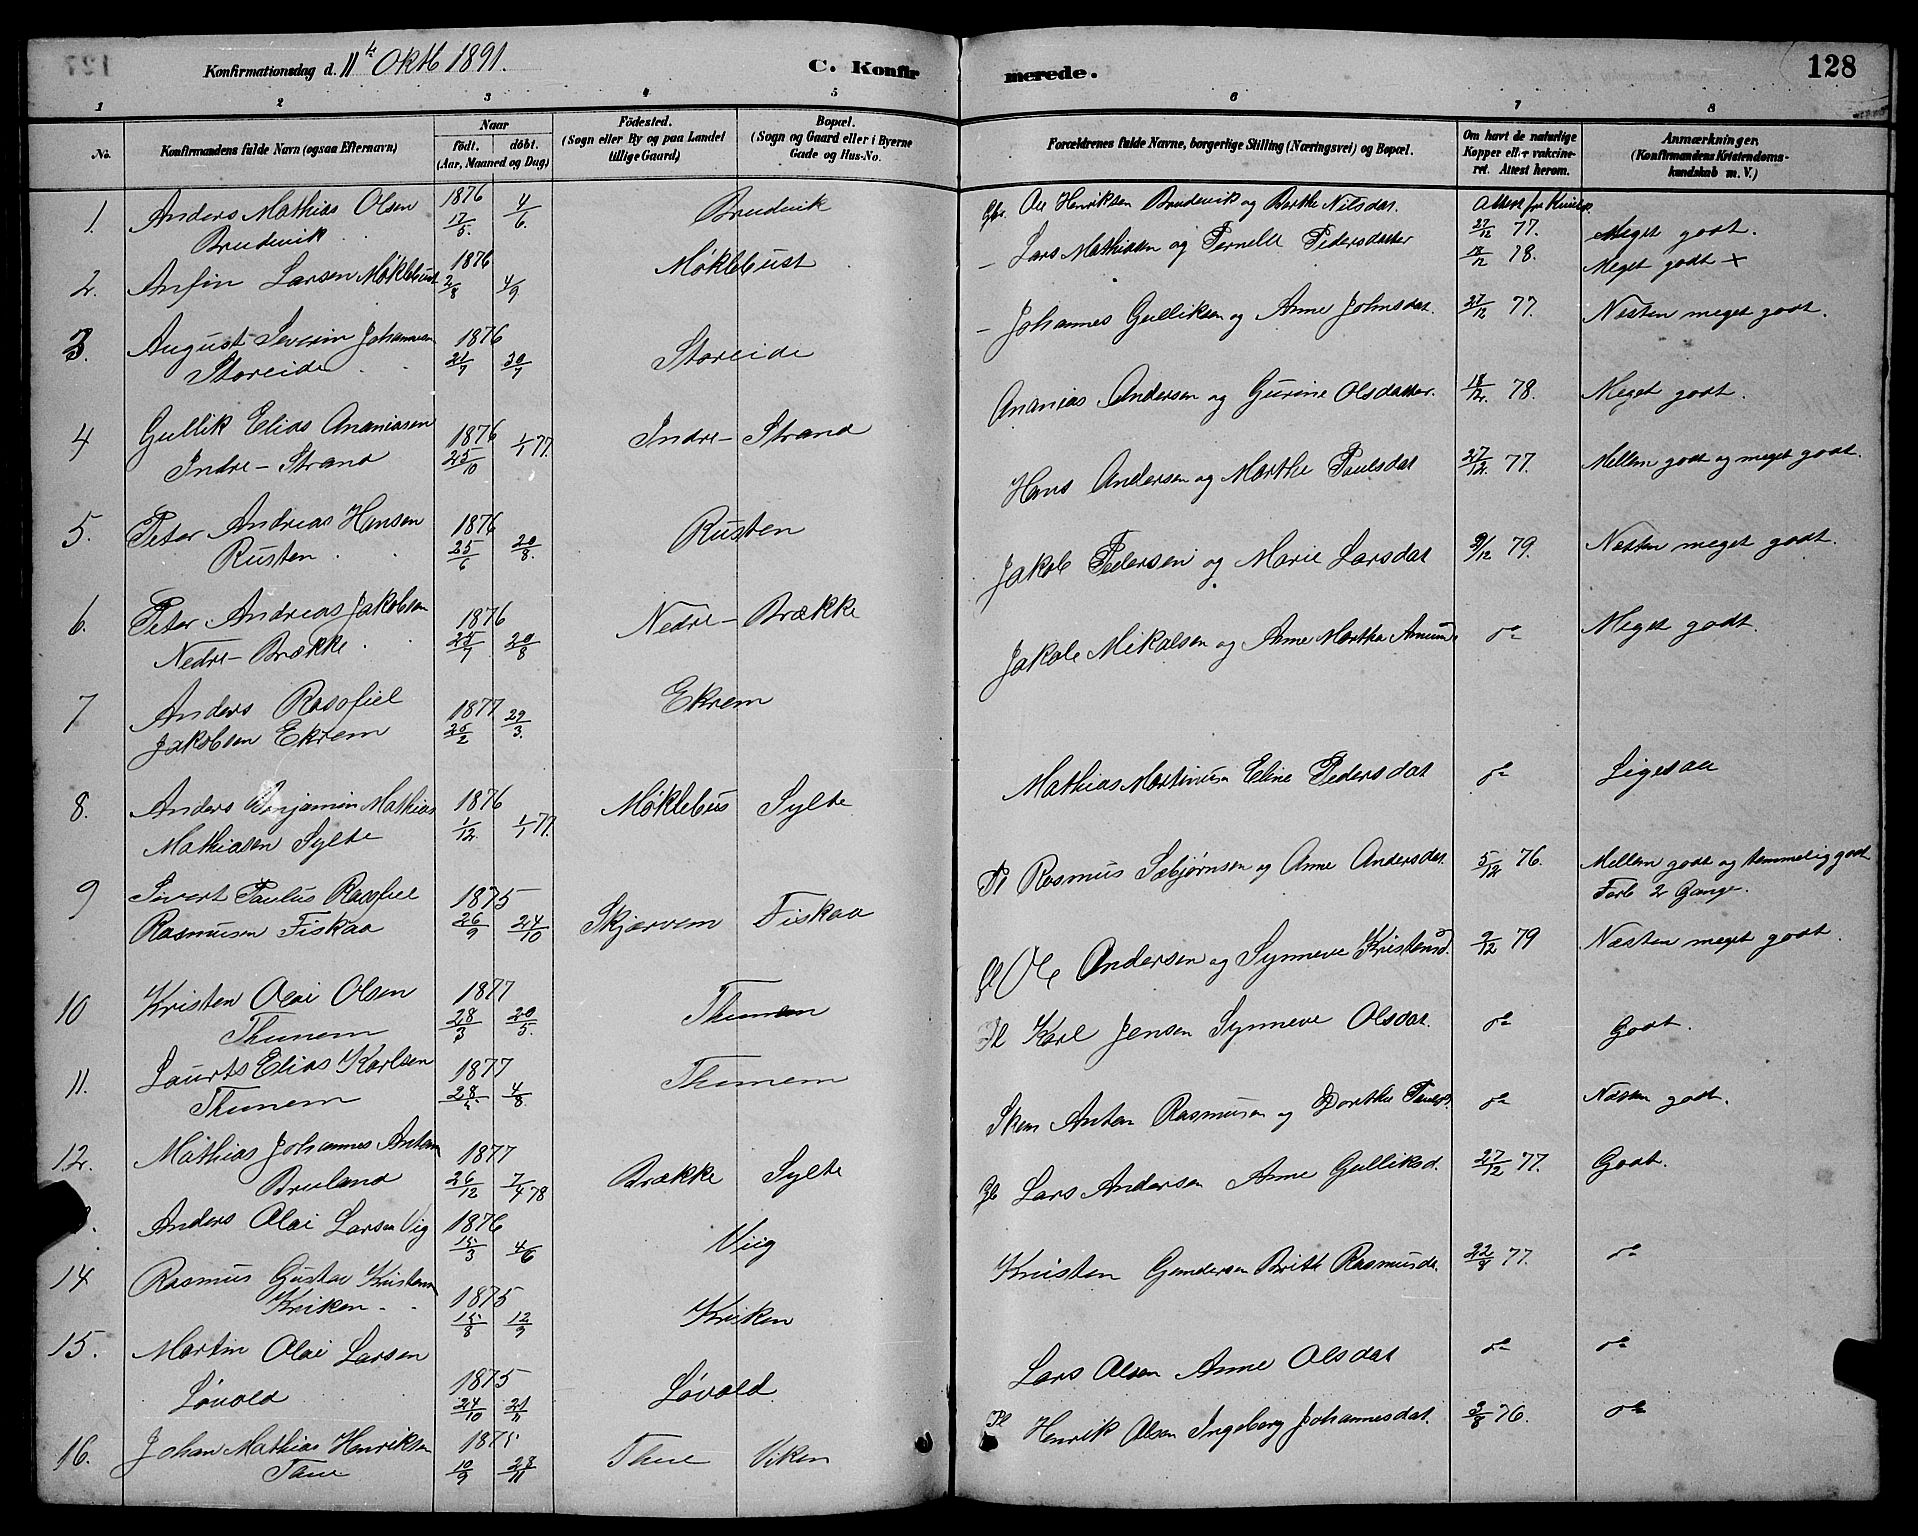 Konfirmationsdag d. 11te Oktb 1891.
C. Konfirmerede.
128
1 2 3 4 5 6 7 8
No.
Konfirmandens fulde Navn (ogsaa Efternavn)
Naar
födt. döbt.
(Aar, Maaned og Dag)
Födested.
(Sogn eller By og paa Landet tillige Gaard)
Bopæl.
(Sogn og Gaard eller i Byerne Gade og Hus-No.
Forældrenes fulde Navne, borgerlige Stilling (Næringsvei) og Bopæl.
Om havt de naturlige Kopper eller vakcineret. Attest herom.
Anmærkninger.
(Konfirmandens Kristendomskundskab m. V.)
1. Anders Mathias Olsen 1876 17/5 4/6 Brudevik Gbr. Ole Henriksen Brudevik og Berthe Nilsdat. Attest fra 27/12 77. Meget godt.
Brudevik
2. Anfin Larsen Møklebust 1876 2/8 4/9 Møklebust – Lars Mathiasen og Pernelle Pedersdatter 18/12 78. Meget godt x
3. August Severin Johannesen 1876 21/7 30/7 Storeide – Johannes Gulliksen og Anne Johnsdat. 27/12 77. Næsten meget godt.
Storeide
4 Gullik Elias Ananiasen 1876 25/10 1/1 77. Indre-Strand Ananias Andersen og Gurine Olsdatter. 18/12 78. Meget godt.
Indre-Strand
5. Peter Andreas Hansen 1876 25/6 20/8. Rusten Hans Andersen og Marthe Paulsdat 27/12. 77. Mellem godt og meget godt.
Rusten
6. Peter Andreas Jakobsen 1876 24/7 20/8 Nedre-Brække Jakob Pedersen og Marie Larsdat 9/12 79. Næsten meget godt.
Nedre-Brække
7 Anders Rasofiel 1877 25/2 29/3. Ekrem Jakob Mikalsen og Anne Martha Amund. do Meget godt.
Jakobsen Ekrem
8. Anders Benjamin Mathias 1876 1/12. 1/1 77. Møklebus Sylte Mathias Martinusn Eline Pedersdat do Ligesaa
Mathiasen Sylte
9 Sivert Paulus Rasofiel 1875 26/9 24/10 Skjærvem Fiskaa Pl Rasmus Sæbjørnsen og Anne Andersdat. 5/12 76. Mellem godt og temmelig godt
Rasmusen Fiskaa Forb 2 Gange.
10 Kristen Olai Olsen 1877 28/3 20/5. Thunem Ole Andersen og Synneve Kristensd. 9/12 79 Næsten meget godt.
Thunem
11. Laurits Elias Karlsen 1877 4/8 Thunem Pl Karl Jensen Synneve Olsdat. do Godt.
Thunem
12. Mathias Johannes Anton 1877 26/12 7/4 78 Brække Sylte Anton Rasmusen og Dorthe do Næsten godt.
Bruland
Anders Olai Larsen Vig 1876 15/3 4/6 Viig Gb Lars Andersen Anne Gulliksd. 27/12 77. Godt.
14 Rasmus Gustav Kristensn 1875 15/8 12/9 Kriken Kristen Gundersen Britt Rasmusdt. 22/8 77. do
Kriken
15. Martin Olai Larsen 1875 24/10 21/11 Løvold Lars Olsen Anne Olsdat do do
Løvold
16. Johan Mathias Henriksen 1875 10/9 28/11 Thue Viken Pl Henrik Olsen Ingeborg Johannesdat. 3/8 76. do
Thue